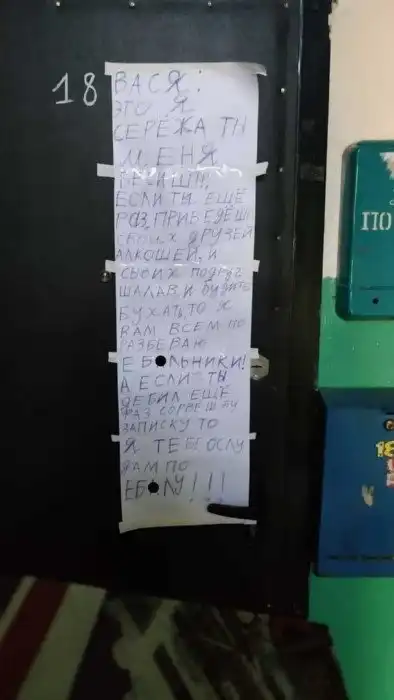 18
ВАСЯ:
ЭТО Я
СЕРЁЖА ТЫ
МЕНЯ
БЕСИШЬ,
ЕСЛИ ТЫ ЕЩЁ
РОЗ ПРИВЕДЁШЬ
СВОИХ ДРУЗЕЙ
АЛКОШЕЙ, И
СВОИХ ПОДРУГ
ШАЛАВ, И БУДИТЕ
БУХАТЬ, ТО Я
ВАМ ВСЕМ ПО
РАЗБЕВАЮ
ЕБ●ЛЬНИКИ!
А ЕСЛИ ТЫ
ДЕБИЛ ЕЩЁ
РАЗ СОРВЕШ ЭТУ
ЗАПИСКУ ТО
Я ТЕБЕ ОСЛУ
ДАМ ПО
ЕБ●ЛУ!!!
ПО